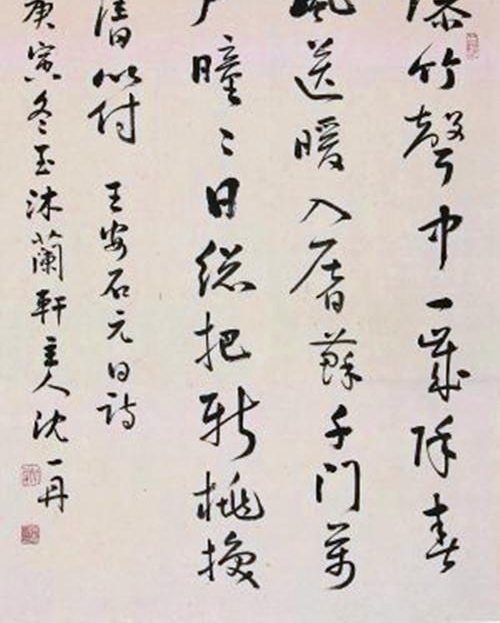 爆竹聲中一歲除春
風送暖入屠蘇千門萬
戶曈〻日總把新桃換
舊符 王安石元日詩
庚寅冬玉沐蘭軒主人沈一丹